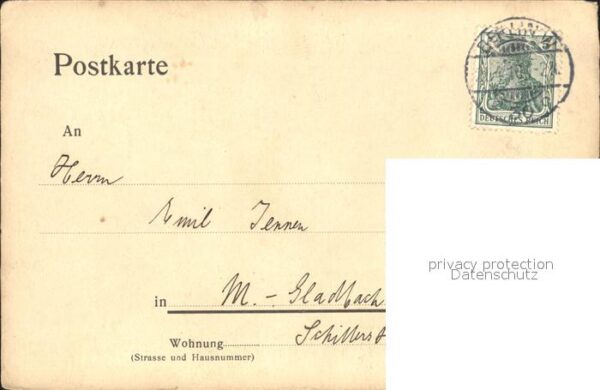 Postkarte
BERLIN W
DEUTSCHES REICH
An
Herrn
Emil Jennen
in M.-Gladbach
Schillerst
Wohnung
(Strasse und Hausnummer)
privacy protection
Datenschutz